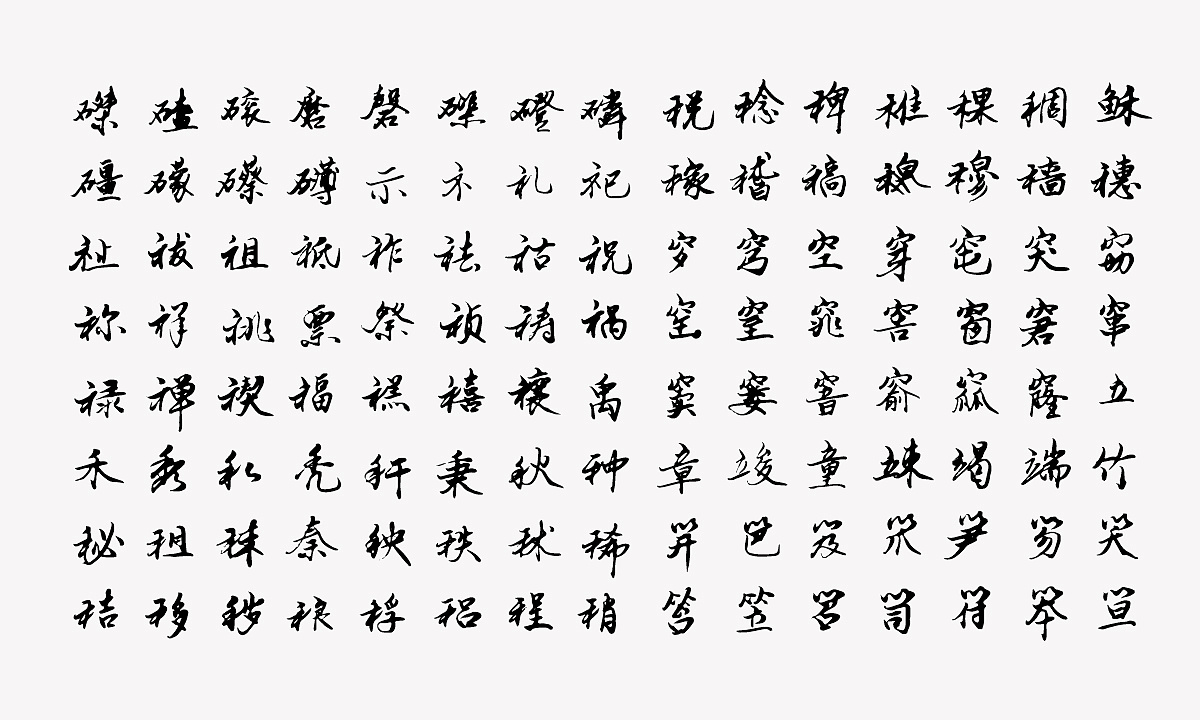 磔磋磙磨磬磲磴磷税稔稗稚稞稠稣
礓礞礤礴示礻礼祀稼稽稿稷穆穑穗
祉祓祖祗祚祛祜祝穸穹空穿窀突窈
祢祥祧票祭祯祷祸窑窒窕窖窗窘窜
禄禅禊福禚禧禳禹窦窭窨窬窳窿立
禾秀私秃秆秉秋种章竣童竦竭端竹
秘租秣秦秧秩秫稀笄笆笈笊笋笏笑
秸移秽稂稃稆程稍笞笠笤笥符笨笪